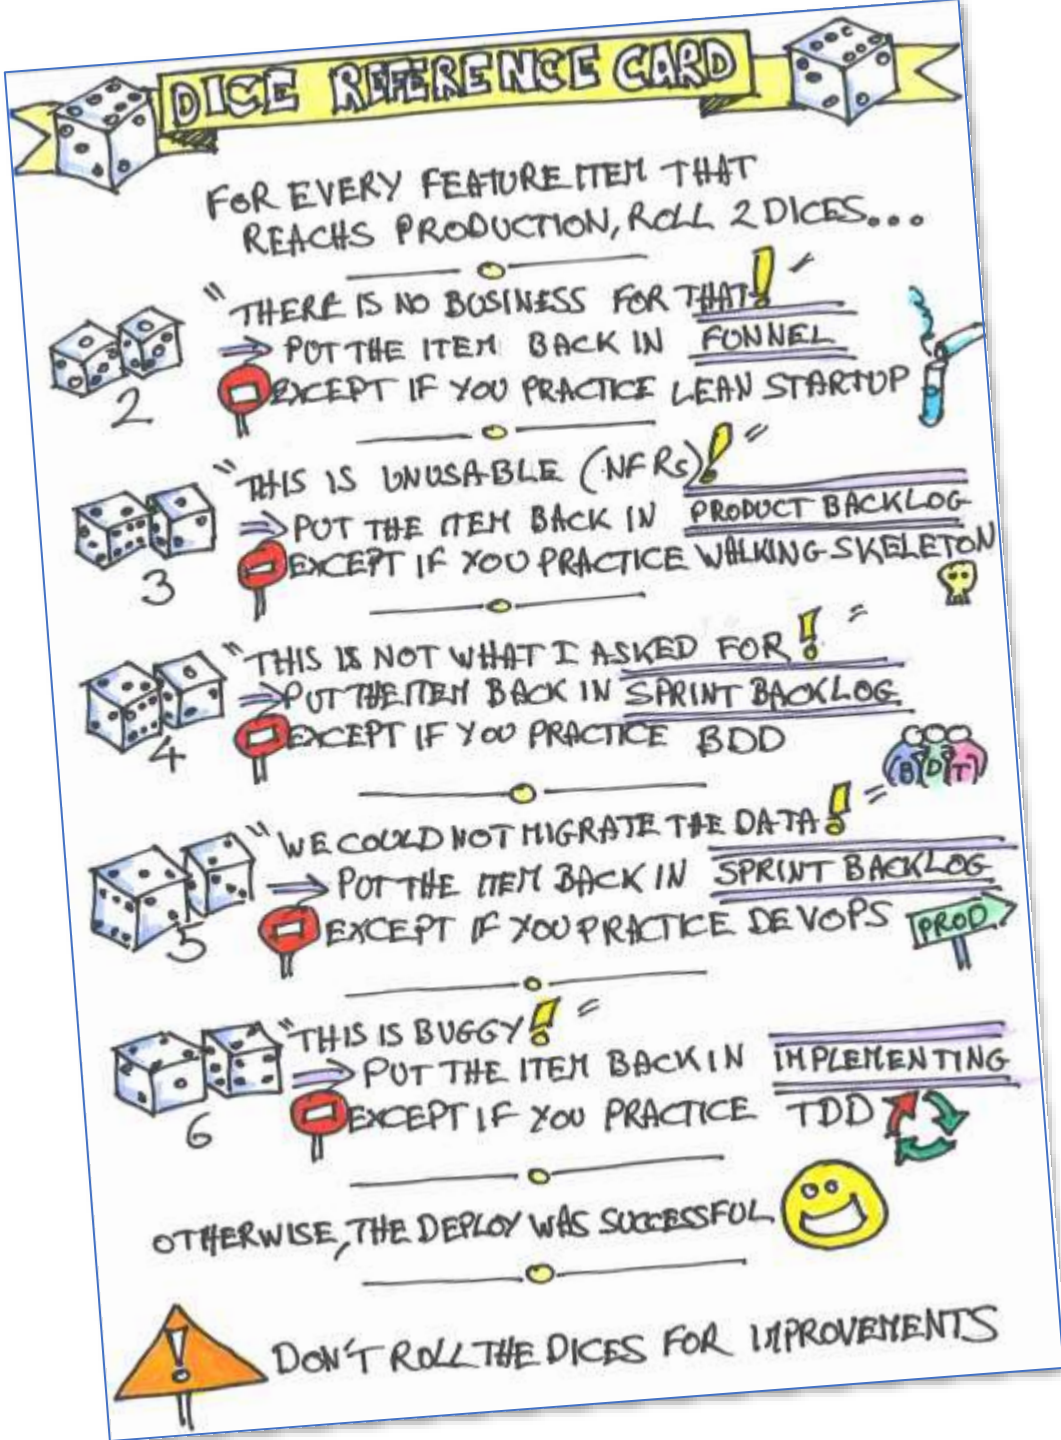 DICE REFERENCE CARD
FOR EVERY FEATURE ITEM THAT
REACHS PRODUCTION, ROLL 2 DICES...
"THERE IS NO BUSINESS FOR THAT!"
⇒ PUT THE ITEM BACK IN FUNNEL
EXCEPT IF YOU PRACTICE LEAN STARTUP
2
"THIS IS UNUSABLE (NFRs)!"
⇒ PUT THE ITEM BACK IN PRODUCT BACKLOG
EXCEPT IF YOU PRACTICE WALKING-SKELETON
3
"THIS IS NOT WHAT I ASKED FOR!"
⇒ PUT THE ITEM BACK IN SPRINT BACKLOG
EXCEPT IF YOU PRACTICE BDD
4
B D T
"WE COULD NOT MIGRATE THE DATA!"
⇒ PUT THE ITEM BACK IN SPRINT BACKLOG
EXCEPT IF YOU PRACTICE DEVOPS
PROD
5
"THIS IS BUGGY!"
⇒ PUT THE ITEM BACK IN IMPLEMENTING
EXCEPT IF YOU PRACTICE TDD
6
OTHERWISE, THE DEPLOY WAS SUCCESSFUL
! DON'T ROLL THE DICES FOR IMPROVEMENTS